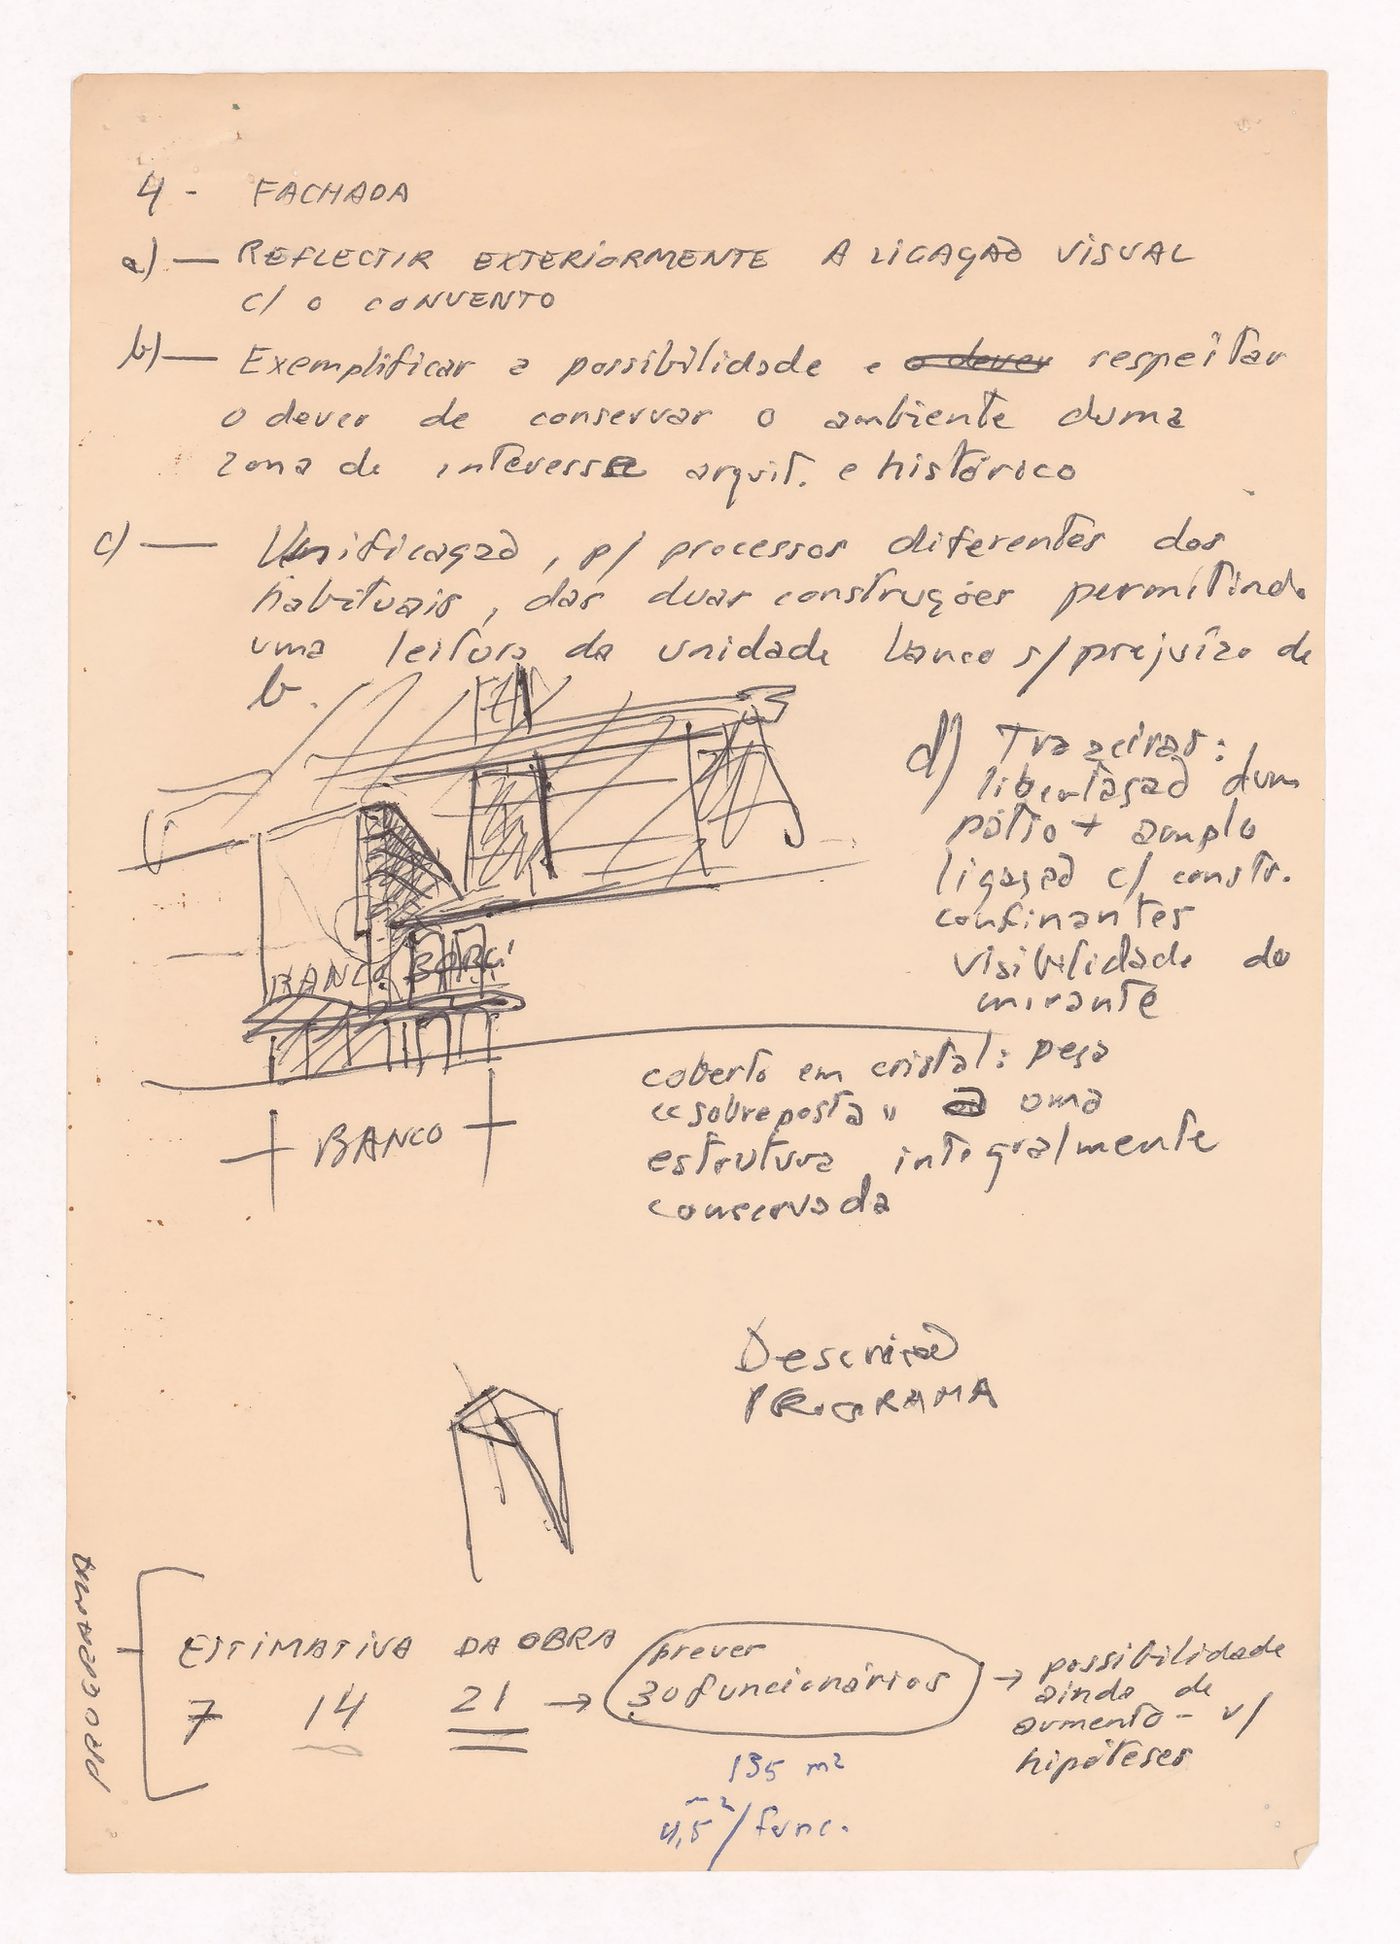 4 - FACHADA
a) — REFLECTIR EXTERIORMENTE A LIGAÇÃO VISUAL
c/ o CONVENTO
b) — Exemplificar a possibilidade e o dever respeitar
o dever de conservar o ambiente duma
zona de interesse arquit. e histórico
c) — Unificação, p/ processos diferentes dos
habituais, das duas construções permitindo
uma leitura da unidade banco s/prejuízo de
b.
d) Trazeiras:
libertação dum
pátio + amplo
ligação c/ constr.
confinantes
visibilidade do
mirante
BANCO BORG
coberto em cristal: peça
"sobreposta" a uma
estrutura integralmente
conservada
BANCO
Descrição
PROGRAMA
PROGRAMA
ESTIMATIVA DA OBRA
7 14 21 →
prever
30 funcionários
→ possibilidade
ainda de
aumento - v/
hipóteses
135 m²
4,5 m²/func.